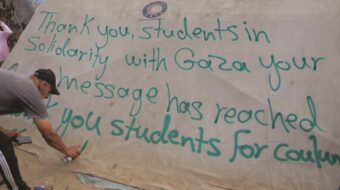 Thank you, students in
Solidarity with Gaza your
message has reached
you students for